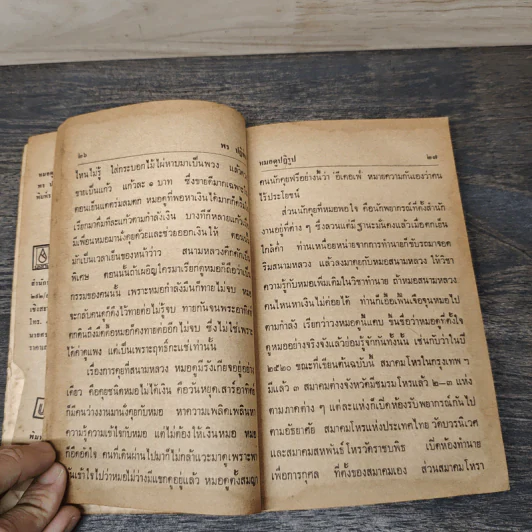 ๒๖ พร ปฏิ
ไหนไม่รู้ ใส่กระบอกไม้ไผ่หาบมาเป็นพวง แล้ว
ขายเป็นแก้ว แก้วละ ๑ บาท ซึ่งขายดีมากเฉพาะ
ตอนเย็นแดดร่มลมตก หมอดูที่พอหาเงินได้มาก
เรียกมาดื่มทีละแก้วตามกำลังเงิน บางทีก็หลายแก้ว
มีเพื่อนหมอมานั่งคุยด้วยและช่วยออกเงินให้ ตอน
มักเป็นเวลาเย็นของหน้าว่าว สนามหลวงคึกคัก
พิเศษ คอนนั้นถ้าเผอิญใครมาเรียกดูหมอก็ถือว่าเป็น
กรรมของคนนั้น เพราะหมอกำลังมึนก็ทายไม่จบ หมอ
จะกลับคนดูก็คงไว้ทายต่อไม่รู้จบ ทายกันจนพระอาทิตย์
ตกดินถึงมืดตื้อหมอก็คงทายต่ออีกไม่จบ ซึ่งไม่ใช่เพราะ
ได้ค่าดูแพง แต่เป็นเพราะฤทธิ์กะแช่เท่านั้น
เรื่องการคุยที่สนามหลวง หมอดูมีรังเกียจอยู่อย่าง
เดียว คือคุยชนิดหมอไม่ได้เงิน คือวันหยุดเสาร์อาทิตย์
ก็มีคนว่างงานมานั่งคุยกับหมอ หาความเพลิดเพลิน
ความรู้ความเข้าใจกับหมอ แต่ไม่ต้องให้เงินหมอ หมอ
ก็คืออึดใจ คนที่เดินผ่านไปมาก็ไม่กล้าแวะมาดูเพราะ
นึกเข้าใจไปว่าหมอไม่ว่างมีแขกดูอยู่แล้ว หมอดูตั้งสมญา
หมอดูปฏิรูป ๒๗
คนนักคุยฟรีอย่างนี้ว่า อีเคอเฟ่ หมายความกันเองว่าคน
ไร้ประโยชน์
ส่วนนักคุยที่หมอพอใจ คือนักพยากรณ์ที่ตั้งสำนัก
งานอยู่ที่ต่าง ๆ ซึ่งล้วนแต่มีฐานะมั่นคงแล้วเมื่อตกเย็น
ใกล้ค่ำ ท่านเหนื่อยหน่ายจากการทำนายก็ขับรถมาจอด
ริมสนามหลวง แล้วลงมาคุยกับหมอสนามหลวง ให้วิชา
ความรู้กับหมอเพิ่มเติมในวิชาทำนาย ถ้าหมอสนามหลวง
คนไหนหาเงินไม่ค่อยได้ ท่านก็เอื้อเฟื้อเจือจุนหมอไป
ตามกำลัง เรียกว่าวงหมอดูนี้แคบ ขึ้นชื่อว่าหมอดูที่ตั้งใจ
ดูหมออย่างจริงจังแล้วย่อมรู้จักกันทั้งนั้น เช่นกับว่าในปี
๒๕๒๐ ขณะที่เขียนต้นฉบับนี้ สมาคมโหรในกรุงเทพ ฯ
มีแล้ว ๓ สมาคมต่างจังหวัดมีชมรมโหรแล้ว ๒–๓ แห่ง
ตามภาคต่าง ๆ แต่ละแห่งก็เปิดห้องรับพยากรณ์กันไป
ตามอัธยาศัย สมาคมโหรแห่งประเทศไทย วัดบวรนิเวศ
และสมาคมสหพันธ์โหรวัดราชบพิธ เปิดห้องทำนาย
เพื่อการกุศล ที่ตั้งของสมาคมเอง ส่วนสมาคมโหรา